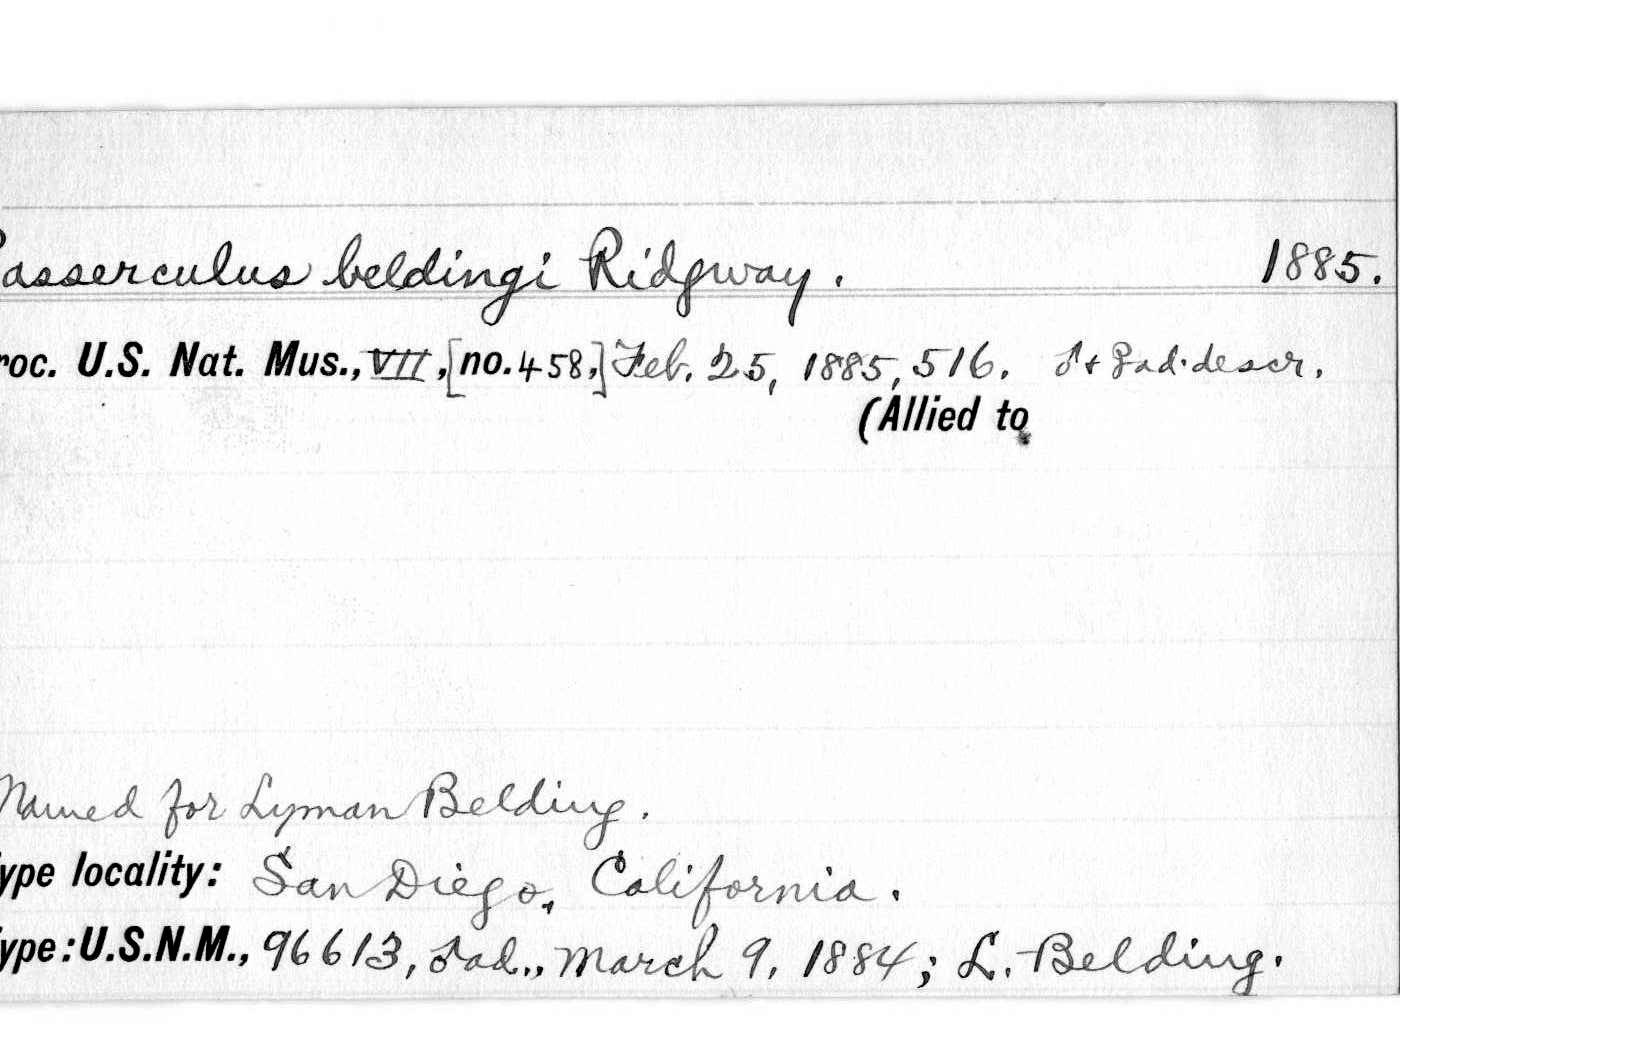 Passerculus beldingi Ridgway. 1885.
roc. U.S. Nat. Mus., VII, [no. 458,] Feb. 25, 1885, 516. ♂ + ♀ ad. descr.
(Allied to
Named for Lyman Belding.
ype locality: San Diego, California.
ype: U.S.N.M., 96613, ♂ ad., March 9, 1884; L. Belding.